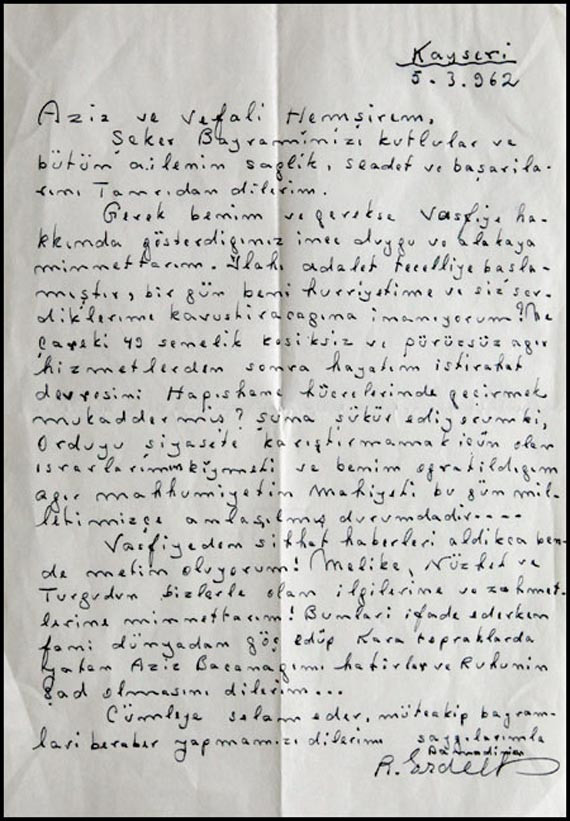 Kayseri
5.3.962
Aziz ve Vefali Hemşirem,
Şeker Bayramınızı kutlular ve
bütün ailenin saglik, seadet ve başarila-
rını Tanrıdan dilerim.
Gerek benim ve gerekse Vasfiye ha-
kkında gösterdiginiz ince duygu ve alakaya
minnettarım. İlahi adalet tecelliye başla-
mıştır, bir gün beni hurriyetime ve siz ser-
diklerime kavuştiracağına inanıyorum! Ne
çareki 49 senelik kesiksiz ve pürüzsüz agır
hizmetlerden sonra hayatım istirahat
devresini Hapishane hücrelerinde geçirmek
mukaddermiş? şuna şükür ediyorumki,
Orduyu siyasete karıştırmamak içün olan
ısrarlarımın kıymeti ve benim ogratıldıgım
agır mahkumiyetin mahiyeti bu gün mil-
letimizçe anlaşılmış durumdadır----
Vasfiyeden sihhat haberleri aldikca ben-
de metin oluyorum! Melike, Nüzhet ve
Turgudun bizlerle olan ilgilerine ve zahmet-
lerine minnettarım! Bunları ifade ederken
fani dünyadan göç edüp Kara topraklarda
yatan Aziz Bacanagımı hatirlar ve Ruhunin
şad olmasını dilerim...
Cümleye selam eder, müteakip bayram-
ları beraber yapmamızı dilerim saygılarımla
R. Erdelh